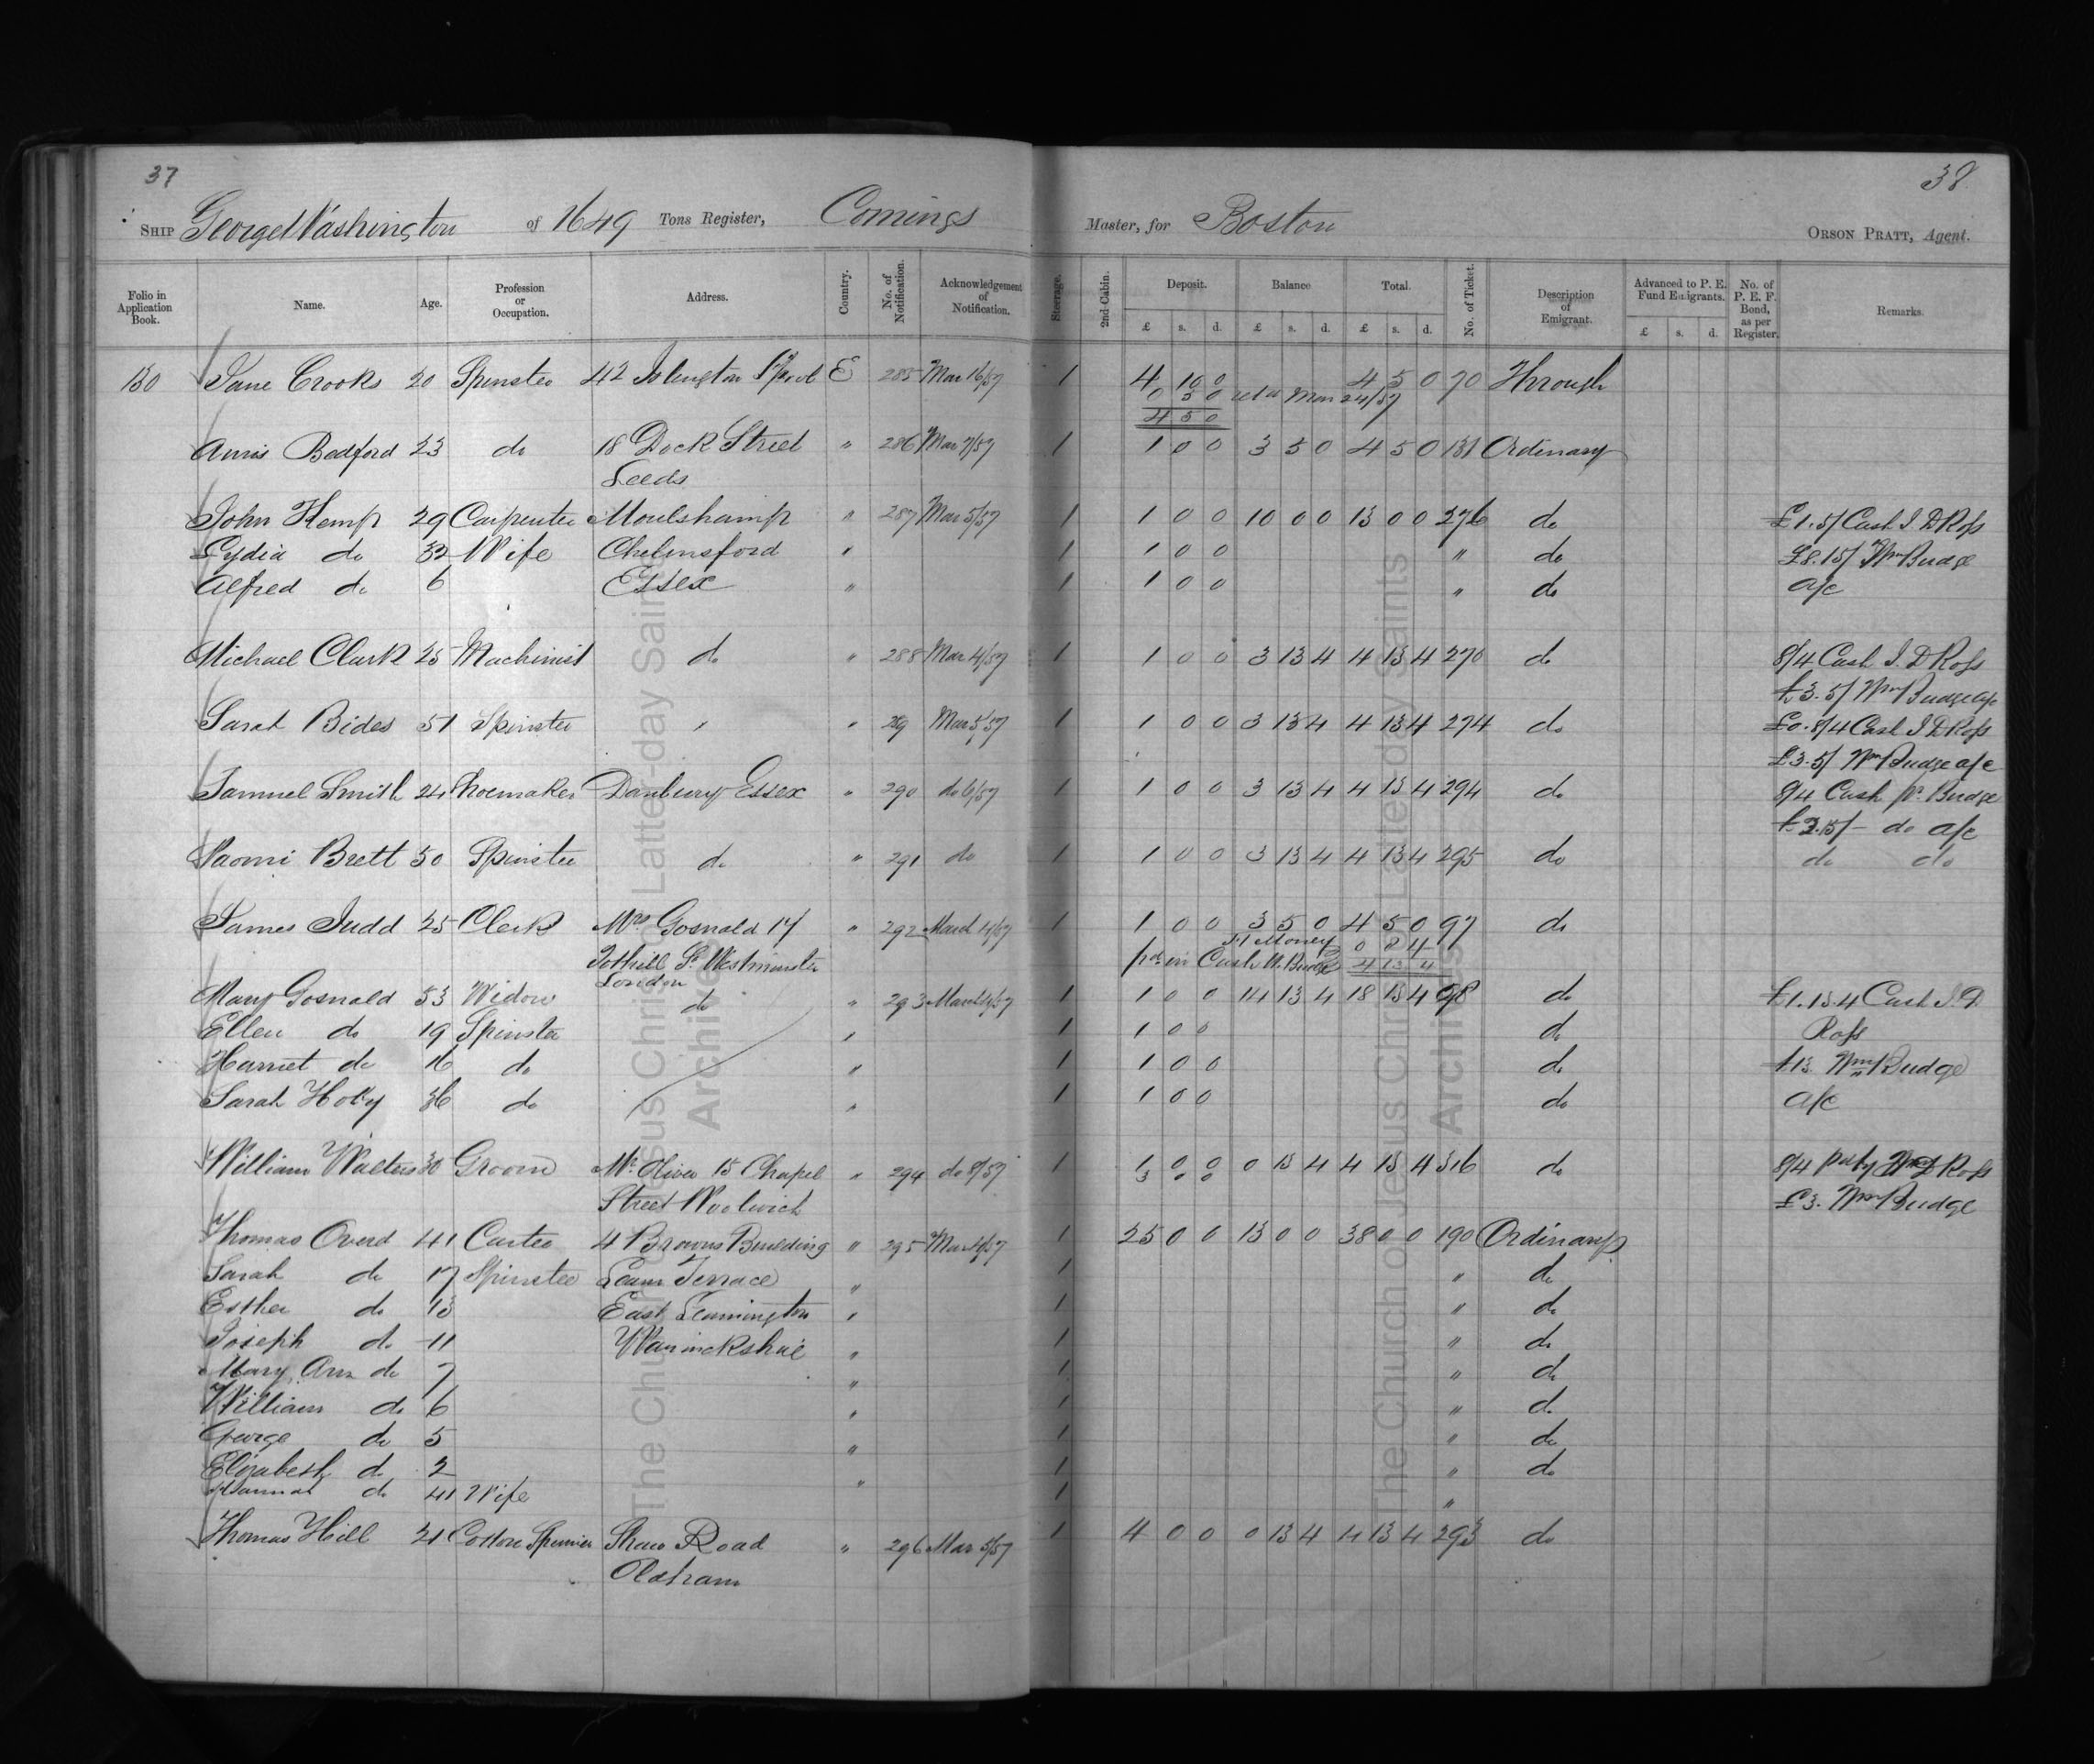 37
38
SHIP George Washington of 1649 Tons Register, Comings Master, for Boston ORSON PRATT, Agent.
Folio in Application Book. Name. Age. Profession or Occupation. Address. Country. No. of Notification. Acknowledgement of Notification. Steerage. 2nd Cabin. Deposit. Balance Total. No. of Ticket. Description of Emigrant. Advanced to P. E. Fund Emigrants. No. of P. E. F. Bond, as per Register. Remarks.
£ s. d. £ s. d. £ s. d. £ s. d.
130 Jane Crooks 20 Spinster 42 Islington E 285 Mar 16/57 1 4 10 0 4 5 0 70 Through
0 5 0 retd Mar 24/57
4 5 0
Annis Bedford 23 do 18 Dock Street " 286 Mar 7/57 1 1 0 0 3 5 0 4 5 0 131 Ordinary
Leeds
John Kemp 29 Carpenter Moulshamp " 287 Mar 5/57 1 1 0 0 10 0 0 13 0 0 276 do £1.5/ Cash J. D Ross
Lydia do 32 Wife Chelmsford " 1 1 0 0 " do £8.15/ Wm Budge
Alfred do 6 Essex " 1 1 0 0 " do a/c
Michael Clark 25 Machinist do " 288 Mar 4/57 1 1 0 0 3 13 4 4 13 4 270 do 8/4 Cash J. D Ross
£3.5/ Wm Budge a/c
Sarah Bides 51 Spinster " " 289 Mar 5/57 1 1 0 0 3 13 4 4 13 4 274 do £0.8/4 Cash J D Ross
£3.5/ Wm Budge a/c
Samuel Smith 24 Shoemaker Danbury Essex " 290 do 6/57 1 1 0 0 3 13 4 4 13 4 294 do 8/4 Cash pr. Budge
do a/c
Naomi Brett 50 Spinster do " 291 do 1 1 0 0 3 13 4 4 13 4 295 do do do
James Judd 25 Clerk Mrs Gosnald 17 " 292 March 4/57 1 1 0 0 3 5 0 4 5 0 97 do
Tothill St Westminster Money 0 8 4
London pd in Cash W. Budge 4 13 4
Mary Gosnald 53 Widow do " 293 March 4/57 1 1 0 0 14 13 4 18 13 4 98 do £1.13.4 Cash J. D
Ellen do 19 Spinster " 1 1 0 0 do Ross
Harriet do 16 do " 1 1 0 0 do £13 Wm Budge
Sarah Hoby 36 do " 1 1 0 0 do a/c
William Walters 30 Groom Mr Oliver 15 Chapel " 294 do 8/57 1 1 0 0 0 13 4 4 13 4 316 do 8/4 pd by D Ross
Street Woolwich 3 0 0 £3. Wm Budge
Thomas Overd 41 Carter 4 Browns Building " 295 Mar 4/57 1 25 0 0 13 0 0 38 0 0 190 Ordinary
Sarah do 17 Spinster Leam Terrace " 1 " do
Esther do 13 East Leamington " 1 " do
Joseph do 11 Warwickshire " 1 " do
Mary Ann do 7 " 1 " do
William do 6 " 1 " do
George do 5 " 1 " do
Elizabeth do 2 " 1 " do
Hannah do 41 Wife 1 "
Thomas Hill 21 Cotton Spinner Shaw Road " 296 Mar 5/57 1 4 0 0 0 13 4 4 13 4 293 do
Oldham
The Church of Jesus Christ of Latter-day Saints
Archives
The Church of Jesus Christ of Latter-day Saints
Archives